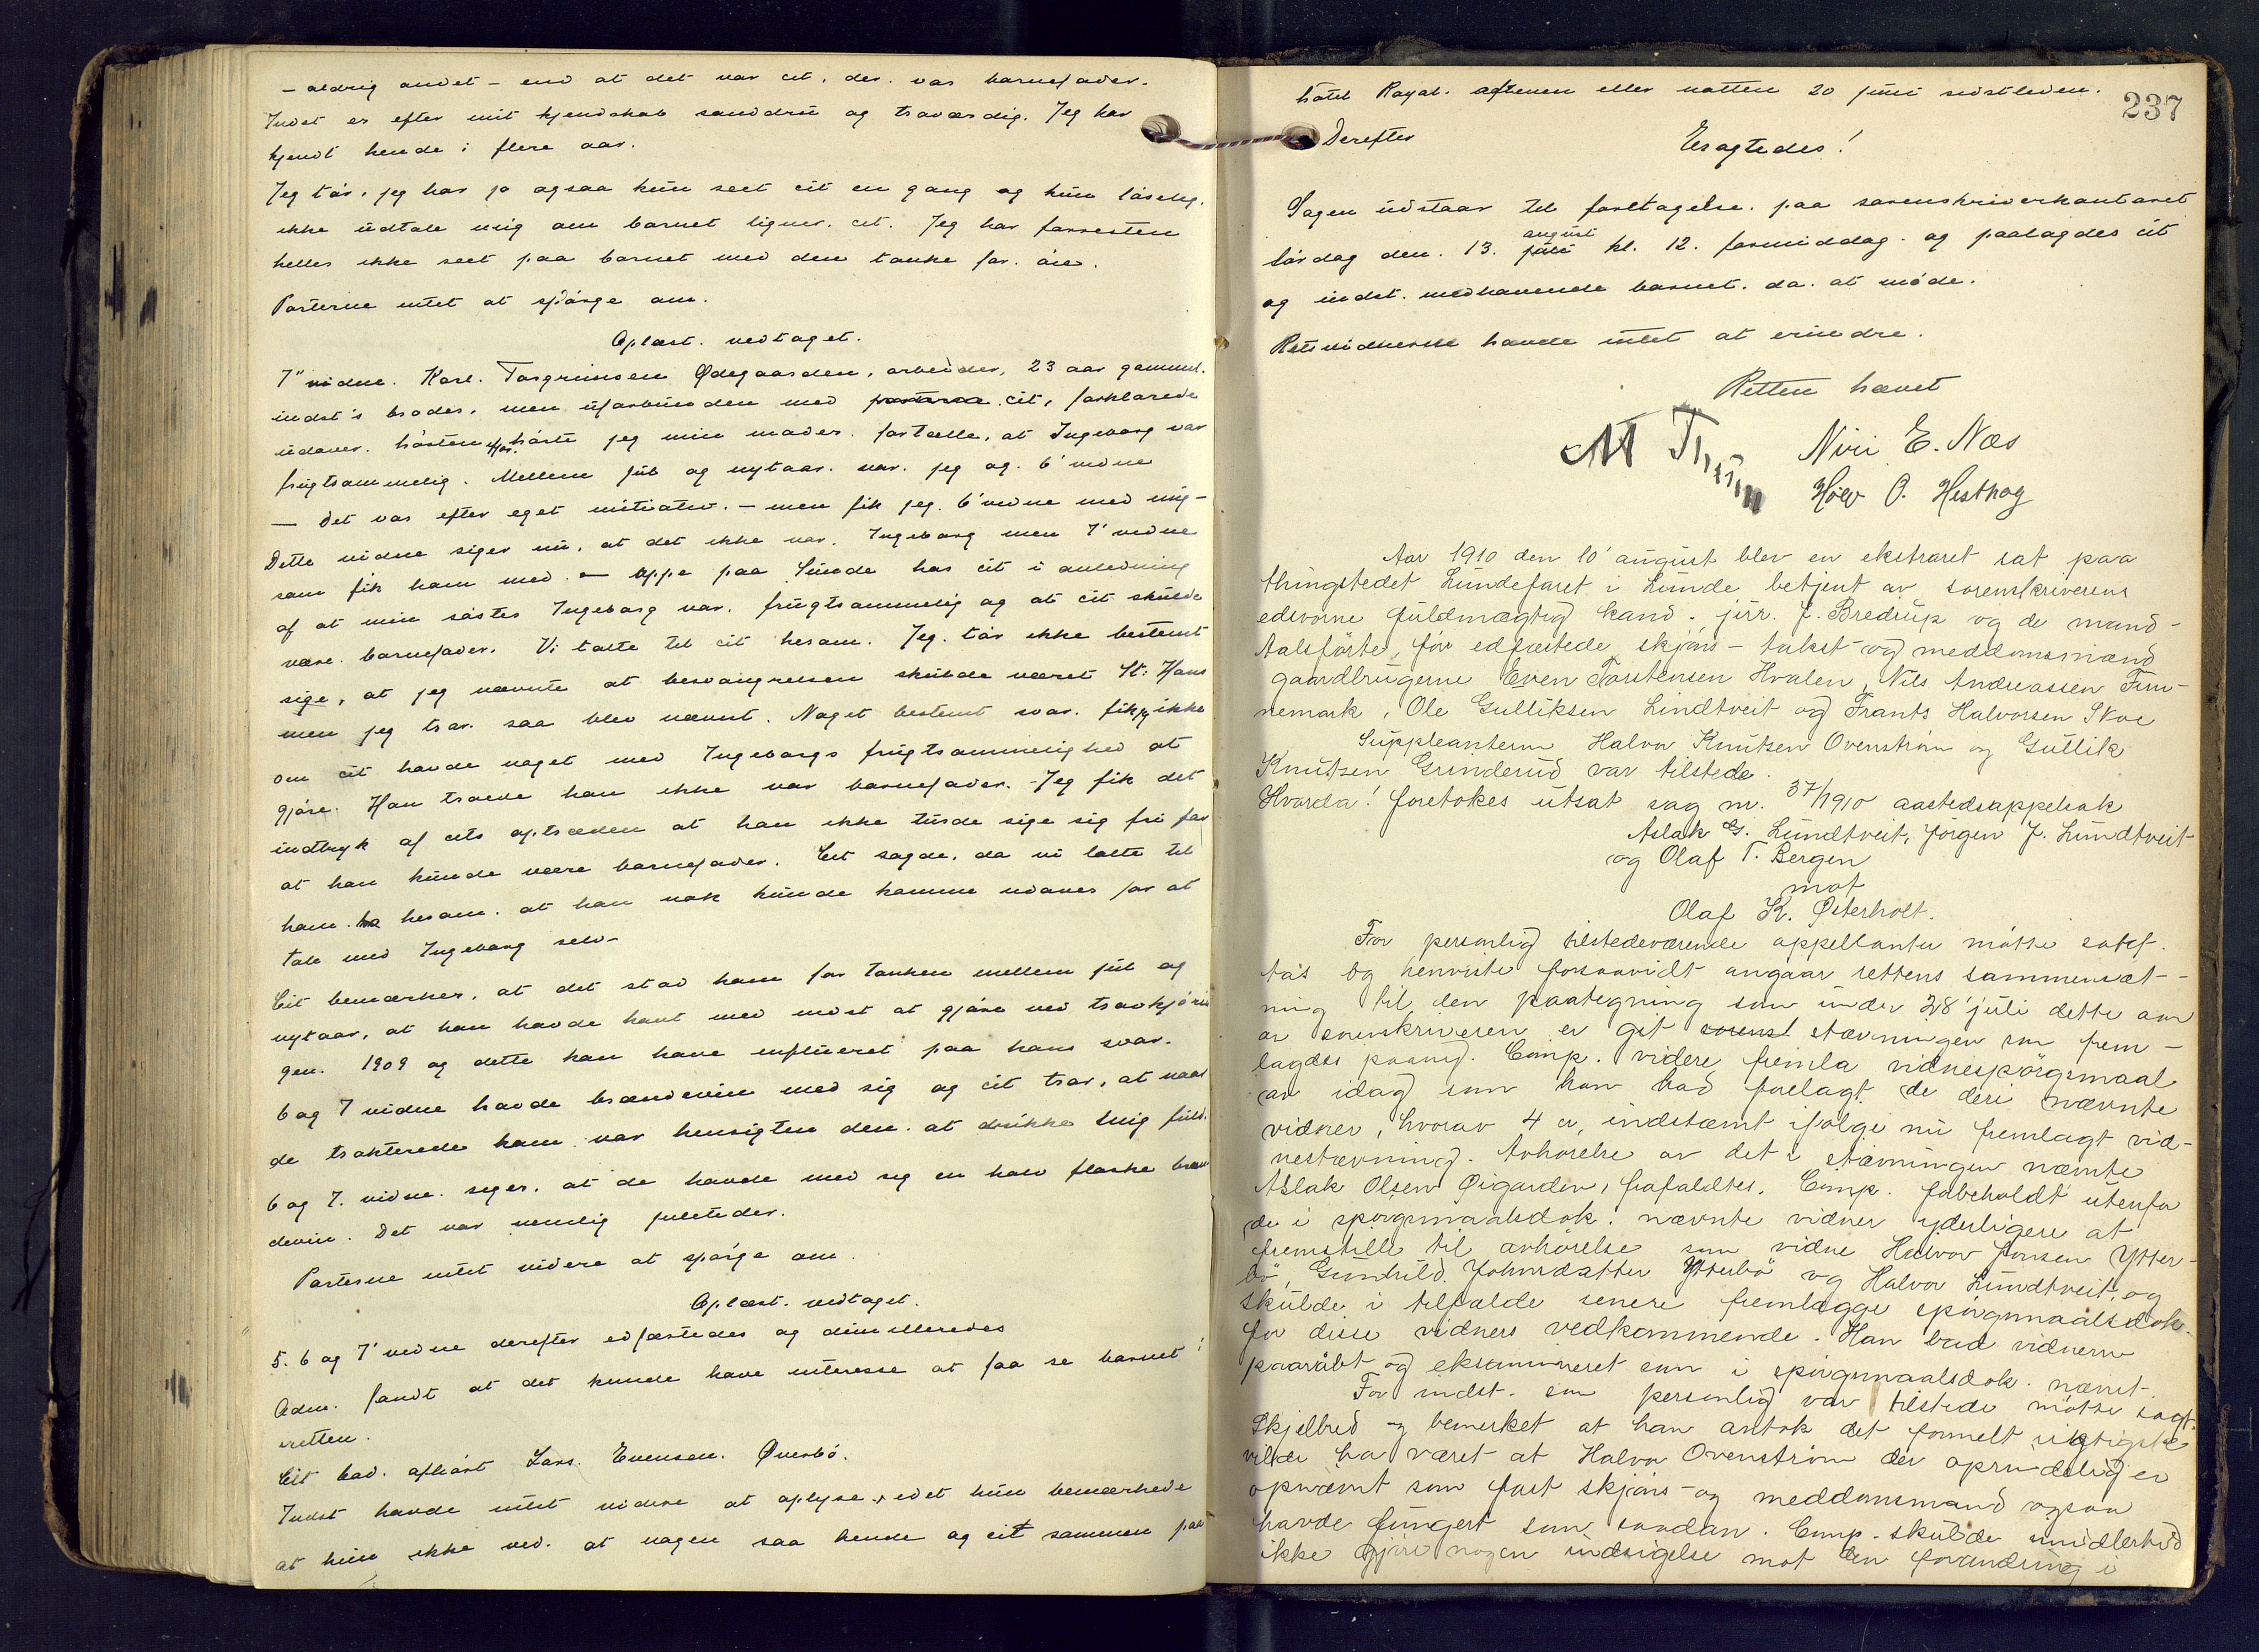 - aldrig andet - end at det var cit. der var barnefader.
Indst er efter mit kjendskab sanddru og troværdig. Jeg har
kjendt hende i flere aar.
Jeg tör, jeg har jo ogsaa kun seet cit en gang og kun
ikke udtale mig om barnet ligner cit. Jeg har forresten
heller ikke seet paa barnet med den tanke for öie.
Parterne intet at spörge om.
Oplæst. vedtaget.
7" vidne. Karl. Torgrimsen Ødegaarden, arbeider, 23 aar gammel.
indst's broder, men uforbunden med cit, forklarede
udover. hösten hörte jeg min moder fortælle, at Ingeborg var
frugtsommelig. Mellem jul og nytaar var jeg og 6' vidne
- det var efter eget initiativ. - men fik jeg 6' vidne med mig -
Dette vidne siger nu, at det ikke var Ingeborg men 7' vidne
som fik ham med - oppe paa Lunde hos cit i anledning
af at min söster Ingeborg var frugtsommelig og at cit skulde
være barnefader. Vi talte til cit herom. Jeg tör ikke bestemt
sige, at jeg nævnte at besvangrelsen skulde været St: Hans
men jeg tror saa blev nævnt. Noget bestemt svar fik jeg ikke
om cit havde noget med Ingeborgs frugtsommelighed at
gjöre. Han troede han ikke var barnefader. - Jeg fik det
indtryk af cits optræden at han ikke turde sige sig fri for
at han kunde være barnefader. Cit sagde, da vi talte til
ham herom. at han nok kunde komme udover for at
tale med Ingeborg selv -
Cit bemærker, at det stod ham for tanken mellem jul og
nytaar, at han havde havt med indst at gjöre ved
gen. 1909 og dette kan have influeret paa hans svar.
6 og 7 vidne havde brændevin med sig og cit tror, at naar
de trakterede ham var hensigten den at drikke mig fuld.
6 og 7. vidne siger, at de havde med sig en halv flaske bræn
devin. Det var nemlig juletider.
Parterne intet videre at spörge om.
Oplæst. vedtaget.
5. 6 og 7' vidne derefter edfæstedes og dimitteredes
Adm. fandt at det kunde have interesse at faa se barnet i
retten.
Cit bad. afhört Lars. Evensen. Överbö.
Indst havde intet videre at oplyse, idet hun bemærkede
at hun ikke ved at nogen saa hende og cit sammen paa
237
hotel Royal. aftenen eller natten 20 juni sidstleden.
Derefter
Eragtedes!
Sagen udstaar til foretagelse paa sorenskriverkontoret
august
lördag den 13. juli kl. 12. formiddag og paalagdes cit
og indst. medhavende barnet. da at möde.
Retsvidnerne havde intet at erindre.
Retten hævet
Niri E. Næs
Hölv O. Hesthag
Aar 1910 den 10' august blev en ekstraret sat paa
thingstedet Lundefaret i Lunde betjent av sorenskriverens
edsvorne fuldmægtig kand. jur. J. Bredrup og de mand-
talsförte, för edfæstede skjöns- takst- og meddomsmænd
gaardbrugerne Even Torstensen Hvalen, Nils Andreassen Fim-
nemark, Ole Gulliksen Lindtveit og Frants Halvorsen Skoe
Suppleanterne Halvor Knutsen Ovenström og Gullik
Knutsen Grinderud var tilstede.
Hvorda! foretokes utsat sag nr. 37/1910 aastedsappelsak
Aslak G. Lundtveit, Jörgen J. Lundtveit
og Olaf T. Bergen
mot
Olaf K. Østerholt.
For personlig tilstedeværende appellanter mötte sakf.
og henviste forsaavidt angaar rettens sammensæt-
ning til den paategning som under 28' juli dette aar
av sorenskriveren er git stævningen som frem-
lagdes paany. Comp. videre fremla vidnespörgsmaal
av idag som han bad forelagt de deri nævnte
vidner, hvorav 4 er indstæmt ifölge nu fremlagt vid-
nestævning. Avhörelse av det i stævningen nævnte
Aslak Olsen Øigarden, frafaldtes. Comp. forbeholdt utenfor
de i spörgsmaalsdok. nævnte vidner yderligere at
fremstille til avhörelse som vidne Halvor Jonsen Ytter-
bö, Gunhild Johnsdatter Ytterbö og Halvor Lundtveit og
skulde i tilfælde senere fremlægge spörgsmaalsdok.
for disse vidners vedkommende. Han bad vidnerne
paaraabt og eksamineret som i spörgsmaalsdok. nævnt.
For indst. som personlig var tilstede mötte sagf.
Skjelbred og bemerket at han antok det formelt rigtigste
vilde ha været at Halvor Ovenström der oprindelig er
opnævnt som fast skjöns- og meddomsmand ogsaa
havde fungert som saadan. Comp. skulde imidlertid
ikke gjöre nogen indsigelse mot den forandring i